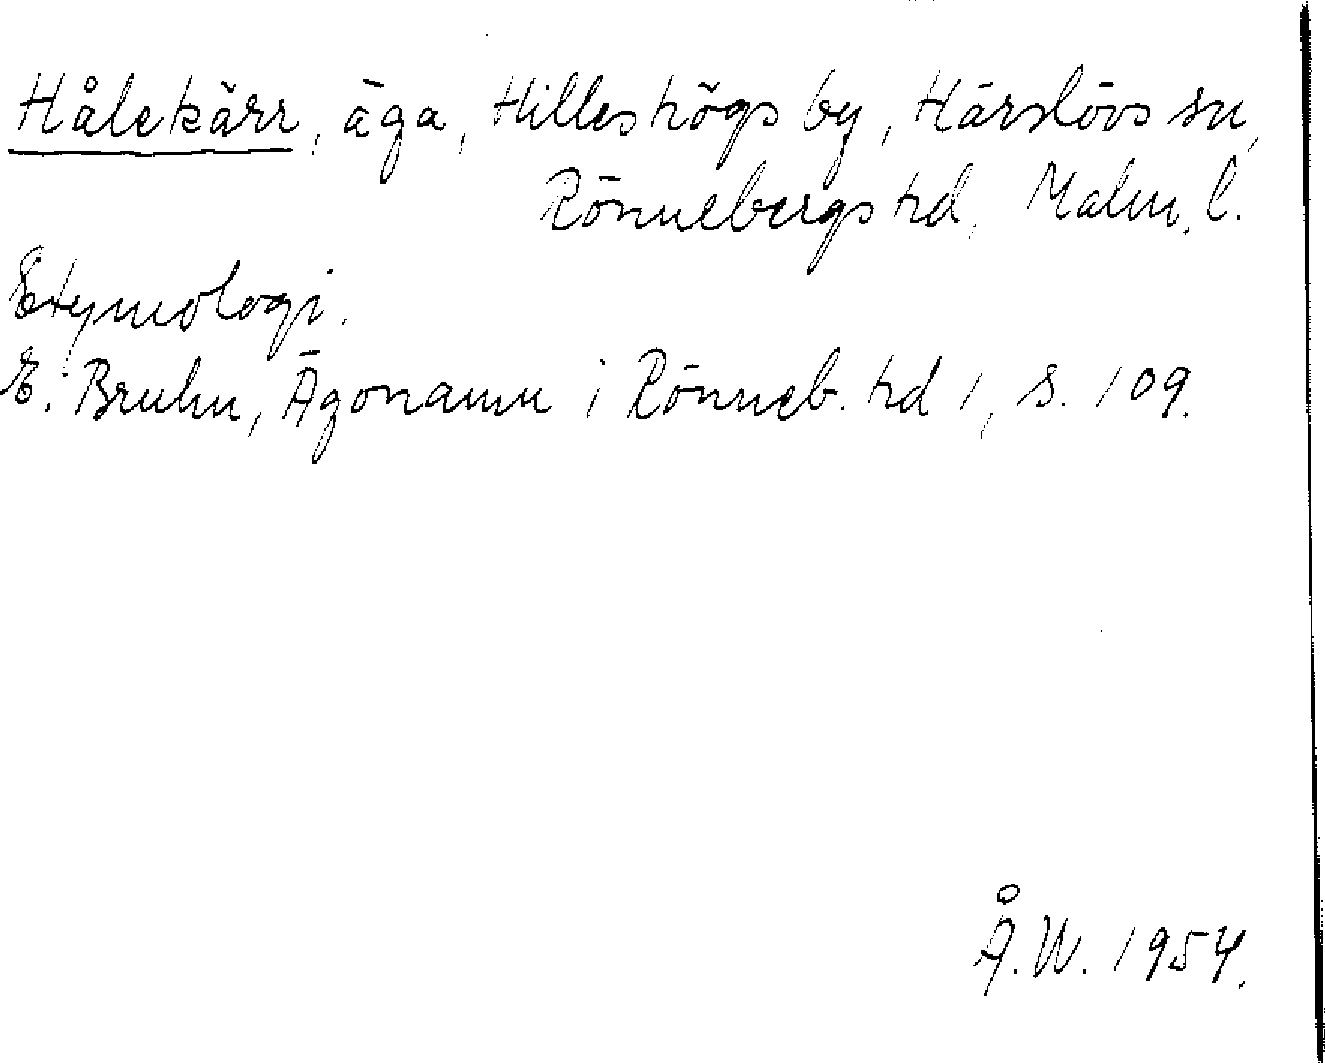 Hålekärr, äga, Hilleshögs by, Härslövs sn,
Rönnebergs hd, Malm. l.
Etymologi.
E. Bruhn, Ägonamn i Rönneb. hd 1, s. 109.
Å. W. 1954.